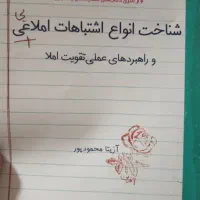 شناخت انواع اشتباهات املاعی
یی
و راهبردهای عملی تقویت املا
آزیتا محمودپور